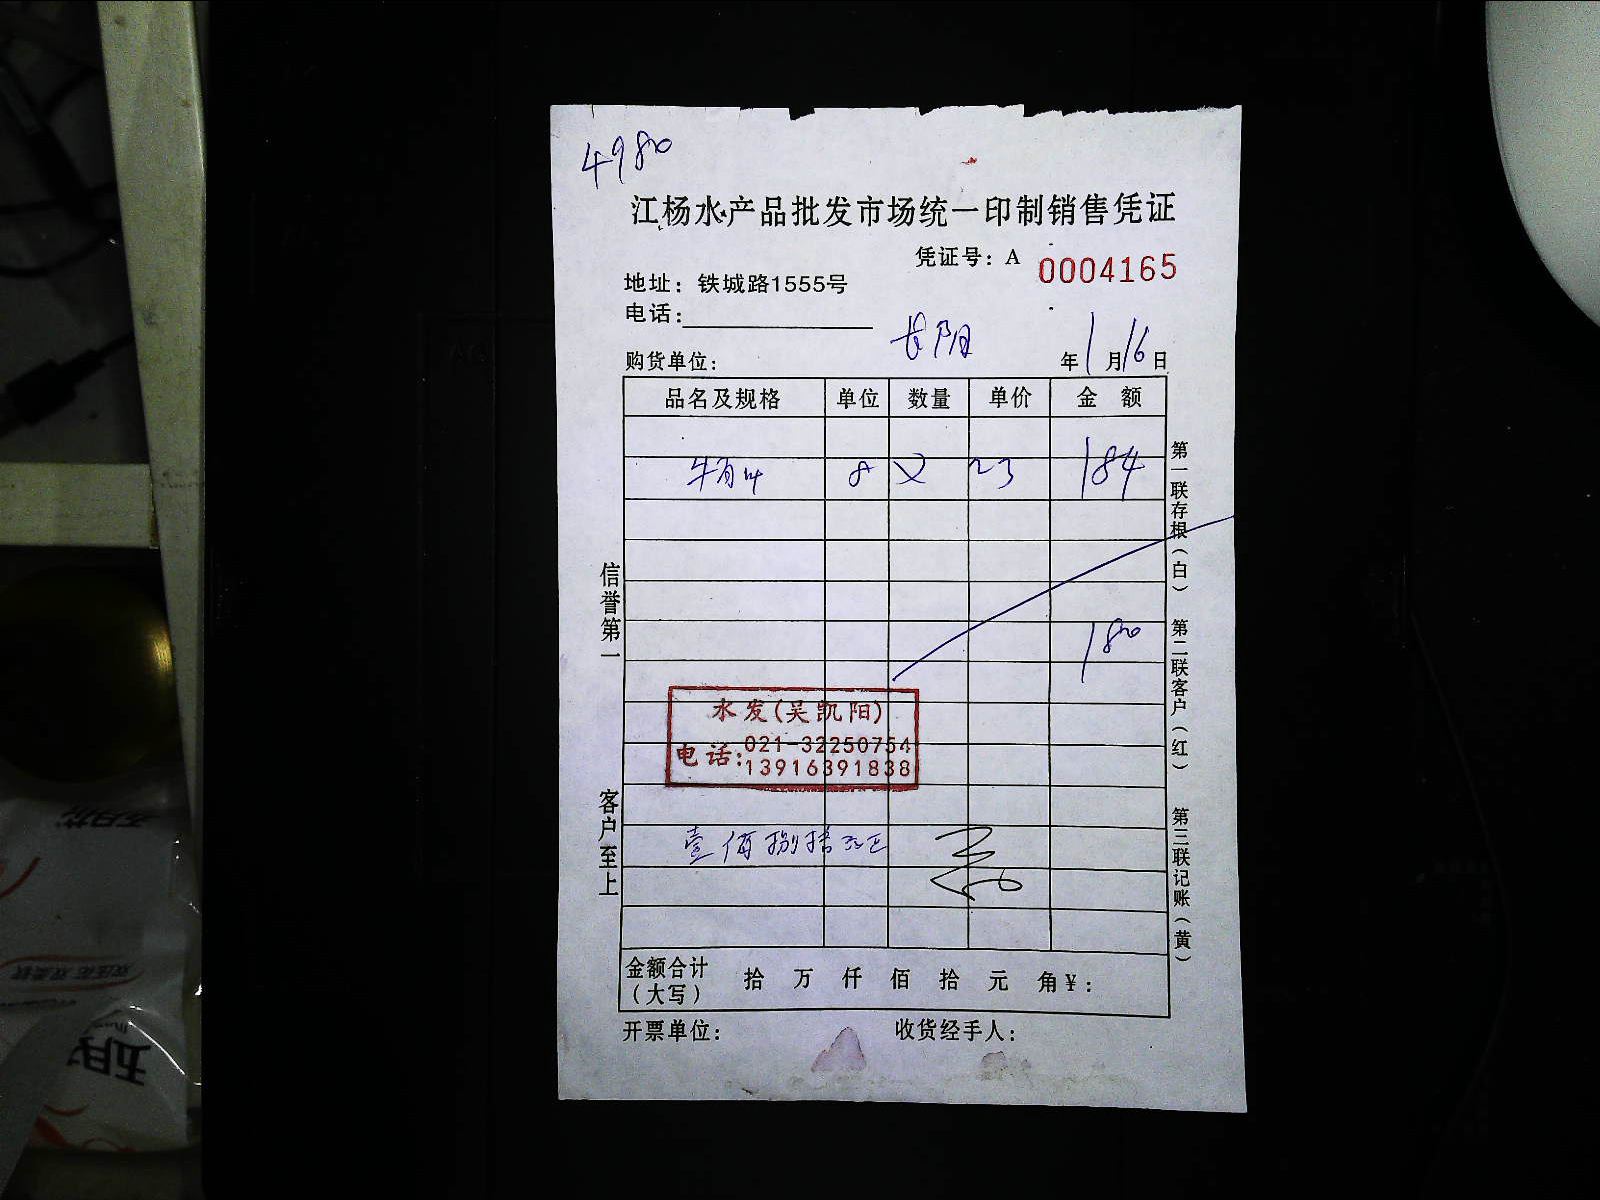 4980
江杨水产品批发市场统一印制销售凭证
凭证号：A 0004165
地址：铁城路1555号
电话：
长阳
购货单位： 年1月16日
品名及规格 单位 数量 单价 金额
牛肚 8 × 23 184
180
水发(吴凯阳)
电话:021-32250754
13916391838
壹佰捌拾元正
金额合计（大写） 拾 万 仟 佰 拾 元 角 ¥：
开票单位： 收货经手人：
信誉第一 客户至上
第一联存根（白） 第二联客户（红） 第三联记账（黄）